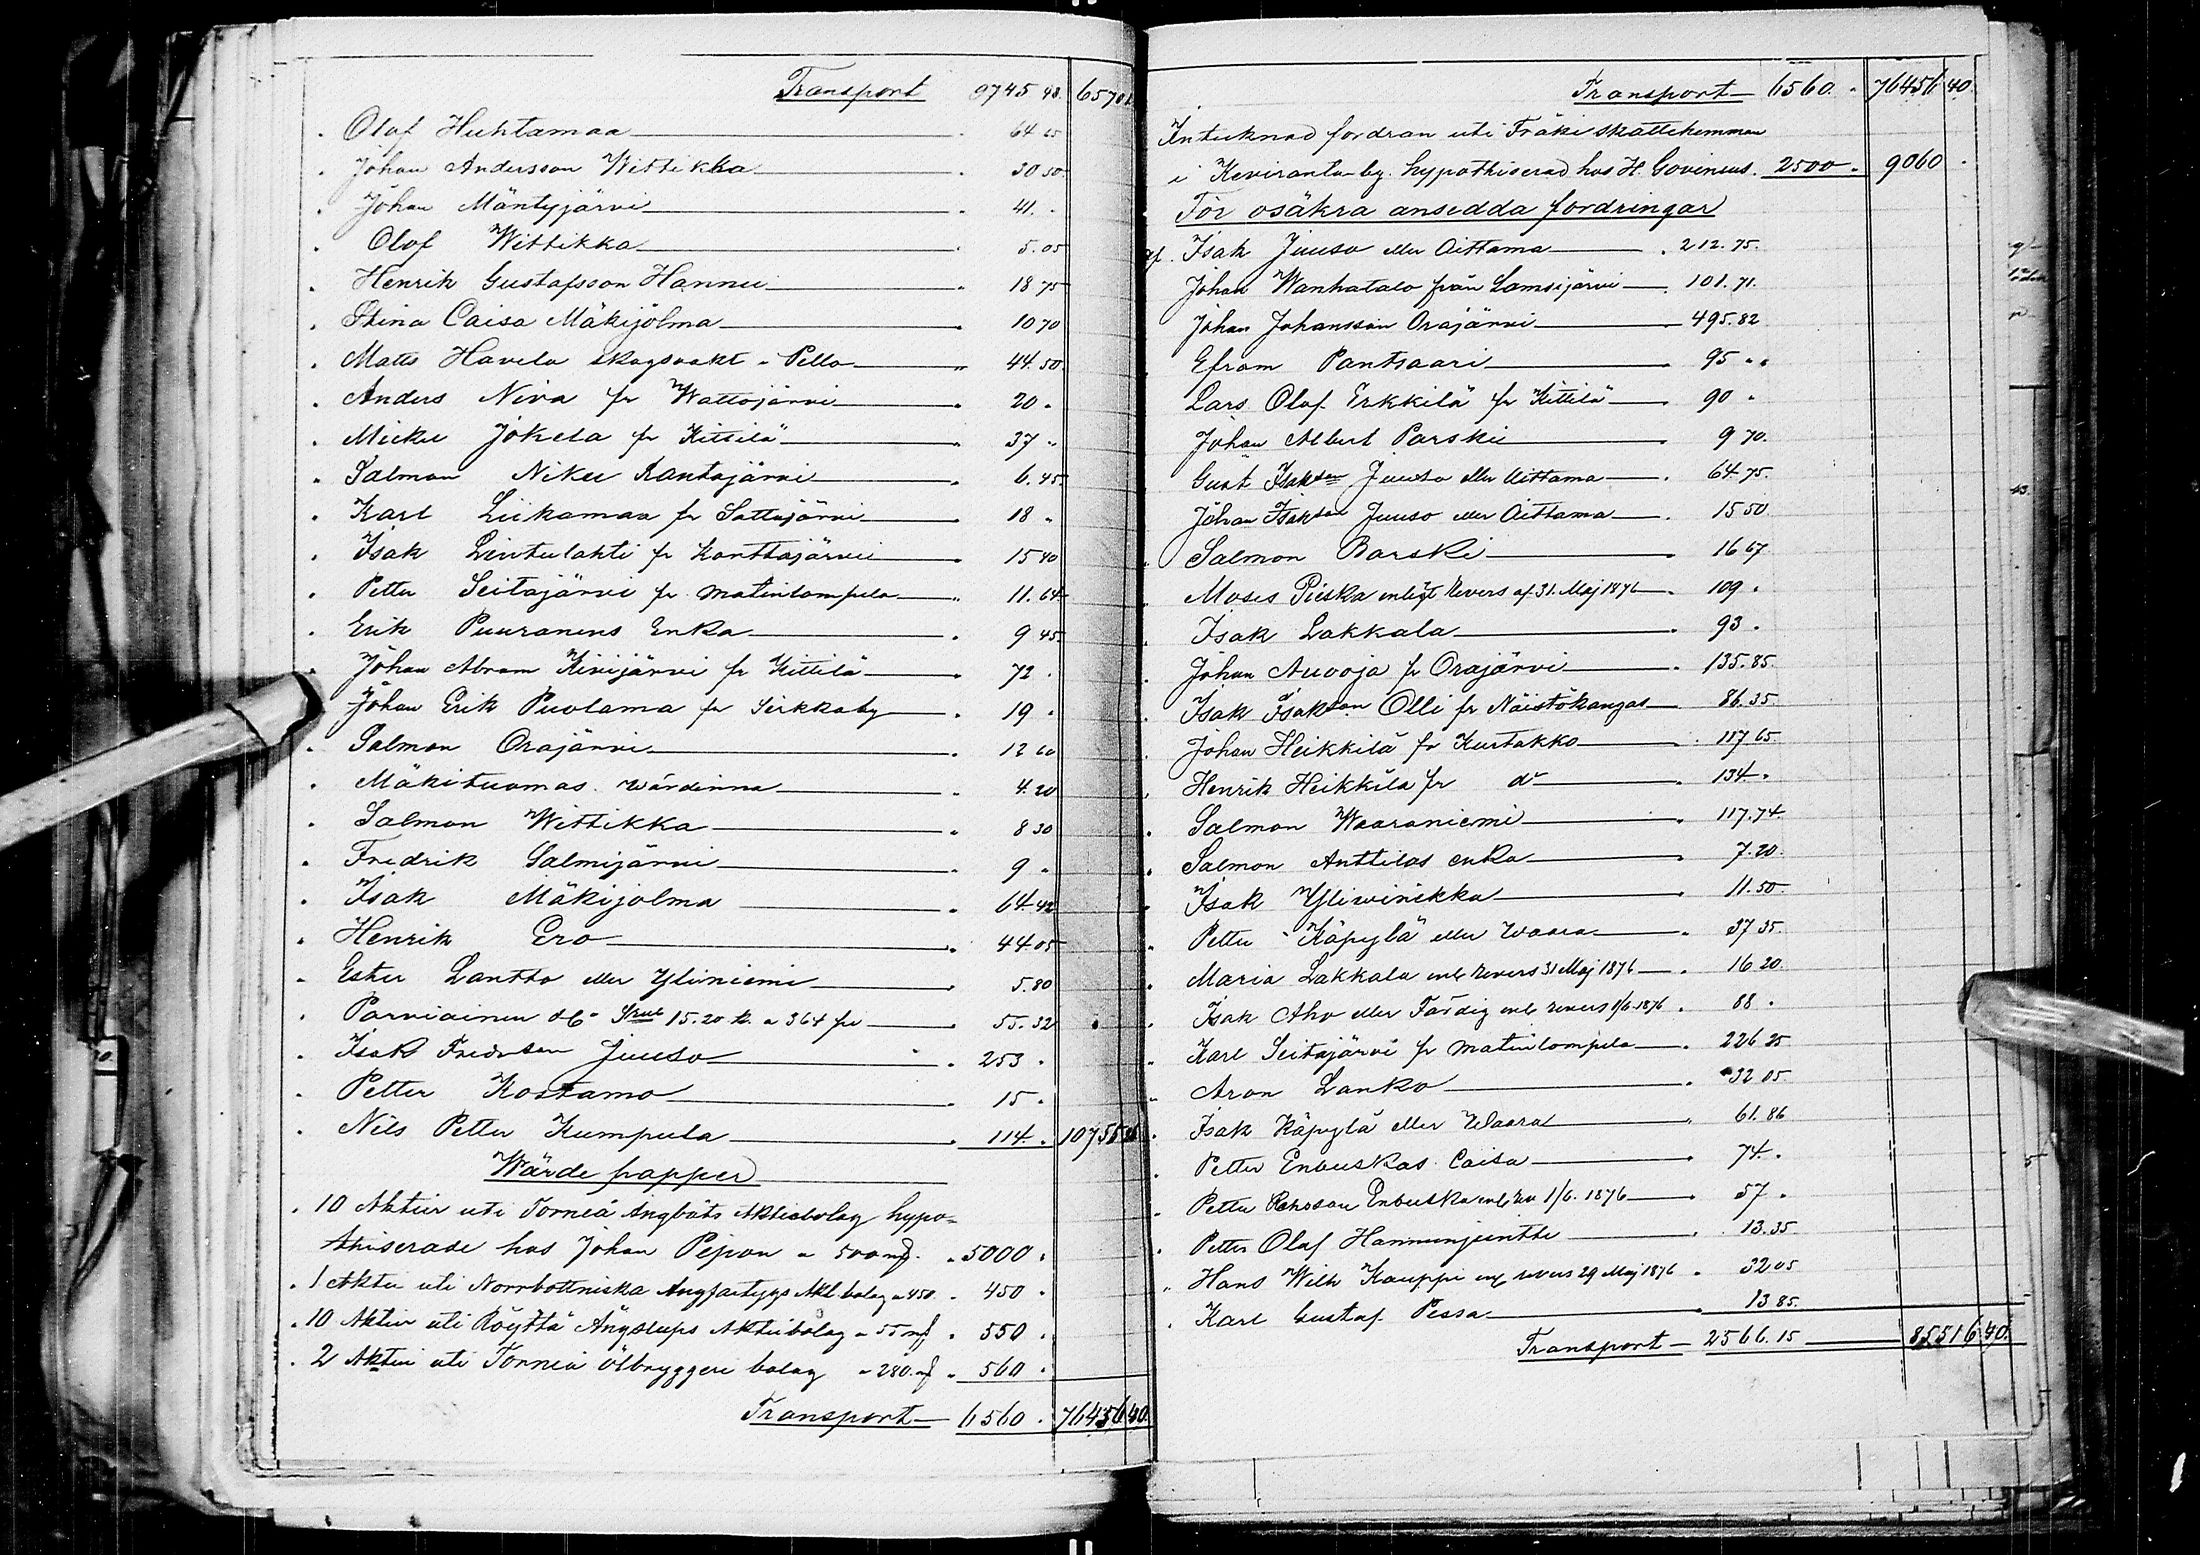 Transport 9745 48. 6570
" Olof Huhtamaa " 64 25
" Johan Andersson Wittikka " 30 50
" Johan Mäntyjärvi " 41. "
" Olof Wittikka " 5.05
" Henrik Gustafsson Hannu " 18 75
" Stina Caisa Mäkijolma " 10 70
" Matts Havela skogsvakt i Pello " 44.50
" Anders Niva fr Wattojärvi " 20 "
" Micku Jokela fr Kittilä " 37 "
" Salmon Niku Rantajärvi " 6.45
" Karl Liikamaa fr Sattajärvi " 18 "
" Isak Lintulahti fr Kanttajärvi " 15 40
" Petter Seitajärvi fr Matinlompola " 11.64
" Erik Puuranens Enka " 9 45
" Johan Abram Kinijärvi fr Kittilä " 72 "
" Johan Erik Puolama fr Sirkkaby " 19 "
" Salmon Orajärvi " 12 60
" Mäkituomas wärdinna " 4.20
" Salmon Wittikka " 8 30
" Fredrik Salmijärvi " 9 "
" Isak Mäkijolma " 64.42
" Henrik Ero " 44.05
" Ester Lantto eller Yliniemi " 5.80
" Parviainen & Co 15.20 k. a 364 " 55.32
" Isak Fredrsson Juuso " 253 "
" Petter Kostamo " 15 "
" Nils Petter Kumpula " 114. " 10755
Wärde papper
" 10 Aktier uti Torneå Ångbåts Aktiebolag hypo-
thiserade hos Johan Pipon a 500 mf. " 5000 "
" 1 Aktie uti Norrbottniska Ångfartygs Akt. bolag a 450. " 450 "
" 10 Aktier uti Röyttä Ångslups Aktiebolag a 55 mf " 550 "
" 2 Aktier uti Torneå ölbryggeri bolag a 280. mf " 560 "
Transport 6560 " 76456 40.
Transport 6560. " 76456 40.
Intecknad fordran uti Fräki skattehemman
i Keviranta by. hypothiserad hos H. Govenius. 2500 " 9060 "
För osäkra ansedda fordringar
af Isak Juuso eller Aittama " 212.75.
Johan Wanhatalo från Lamsijärvi " 101.71.
Johan Johansson Orajärvi 495.82
Efram Pantsaari 95 " "
Lars Olof Erkkilä fr Kittilä " 90 "
Johan Albert Parski " 9 70.
Gust Isaksson Juuso eller Aittama " 64 75.
Johan Isaksson Juuso eller Aittama " 15 50
" Salmon Barski " 16 67
" Moses Pieska enligt Revers af 31. Maj 1876 " 109 "
" Isak Lakkala " 93 "
" Johan Auvoja fr Orajärvi " 135.85.
" Isak Isaksson Olli fr Näistökangas 86.35
" Johan Heikkilä fr Kurtakko " 117 65.
" Henrik Heikkilä fr do " 134 "
" Salmon Waaraniemi " 117.74
" Salmon Anttilas enka " 7.20.
" Isak Yliwinikka " 11.50.
" Petter Käpylä eller Waara " 37 35.
" Maria Lakkala enl Revers 31 Maj 1876 " 16 20.
" Isak Aho eller Färdig enl revers 1/6 1876 " 88 "
" Karl Seitajärvi fr Matinlompola " 226 25
" Aron Lanko " 32 05.
" Isak Käpylä eller Waara " 61.86
" Petter Enbuskas Caisa " 74. "
" Petter Enbuska enl rev 1/6. 1876 " 57 "
" Petter Olof Hannunjuntti " 13.35
" Hans Wilh Kauppi enl revers 29 Maj 1876 " 32 05
" Karl Gustaf Pessa 13 85.
Transport 2566.15 85516.40.